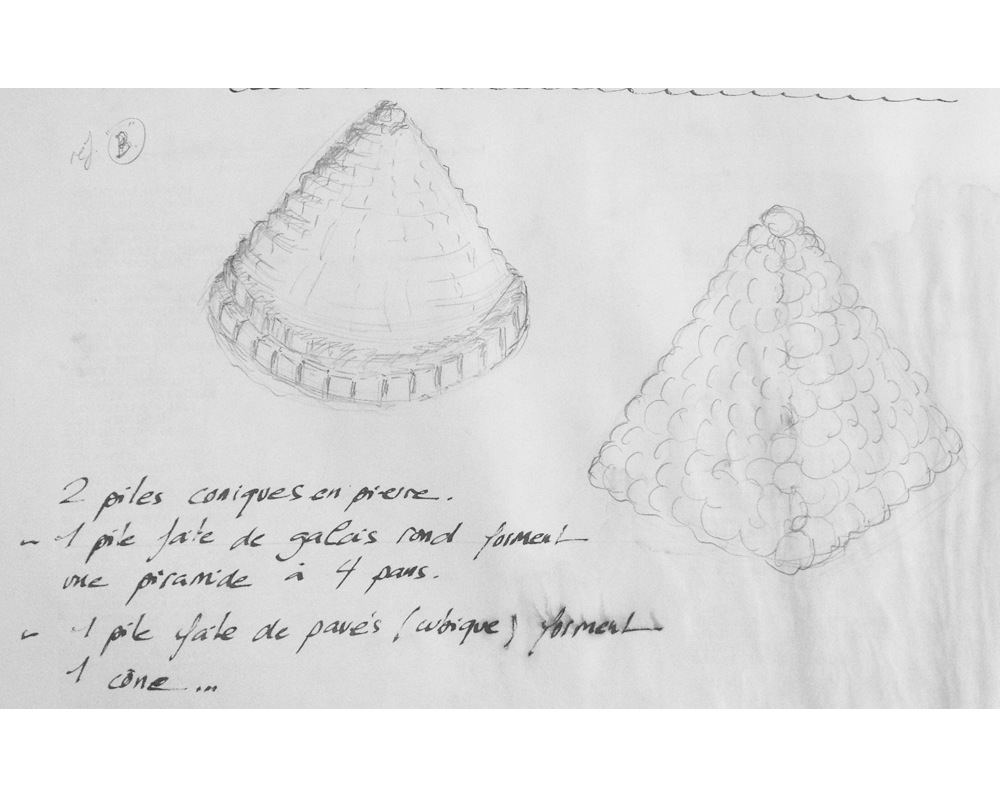 réf. "B"
2 piles coniques en pierre.
- 1 pile faite de galais rond forment
une piramide à 4 pans.
- 1 pile faite de pavés (cubique) forment
1 cône...